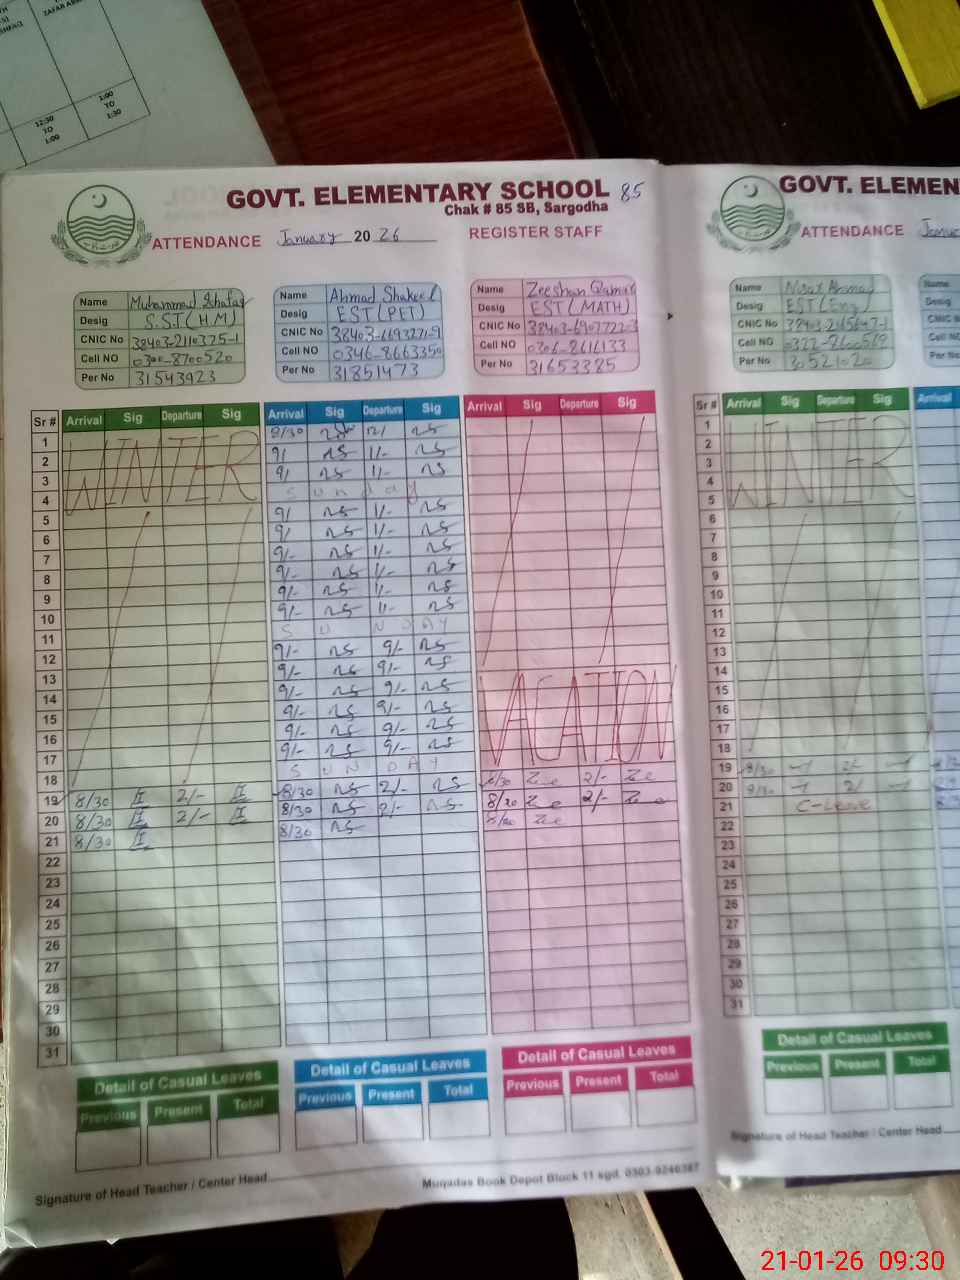 12:30 TO 1:00
1:00 TO 1:30
GOVT. ELEMENTARY SCHOOL 85
Chak # 85 SB, Sargodha
ATTENDANCE January 20 26 REGISTER STAFF
Name Muhammad Ishfaq
Desig S.S.T (H.M)
CNIC No 38403-2110325-1
Cell NO 0300-8700520
Per No 31543923
Name Ahmad Shakeel
Desig EST (PET)
CNIC No 38403-6693271-9
Cell NO 0346-8663350
Per No 31851473
Name Zeeshan Qamar
Desig EST (MATH)
CNIC No
Cell NO 0306-8616133
Per No 31653385
Sr # Arrival Sig Departure Sig Arrival Sig Departure Sig Arrival Sig Departure Sig
1 8/30 12/
2 9/ 1/-
3 9/ 1/-
4 Sunday
WINTER
5 9/ 1/-
6 9/ 1/-
7 9/- 1/-
8 9/- 1/-
9 9/- 1/-
10 9/- 1/-
11 SUNDAY
12 9/- 9/-
13 9/- 9/-
14 9/- 9/-
15 9/- 9/-
16 9/- 9/-
17 9/- 9/-
VACATION
18 SUNDAY
19 8/30 2/- 8/30 2/- 8/30 2/-
20 8/30 2/- 8/30 2/- 8/30 2/-
21 8/30 8/30 8/30
22
23
24
25
26
27
28
29
30
31
Detail of Casual Leaves Detail of Casual Leaves Detail of Casual Leaves
Previous Present Total Previous Present Total Previous Present Total
Signature of Head Teacher / Center Head
Muqadas Book Depot Block 11 sgd. 0303-9246387
GOVT. ELEMEN
ATTENDANCE
Name Ahmad
Desig EST (Eng)
CNIC No
Cell NO 0322-8600569
Per No 30521020
Sr # Arrival Sig Departure Sig Arrival
WINTER
1
2
3
4
5
6
7
8
9
10
11
12
13
14
15
16
17
18
19 8/30 2/-
20 8/30 2/
21 C-Leave
22
23
24
25
26
27
28
29
30
31
Detail of Casual Leaves
Previous Present Total
Signature of Head Teacher / Center Head
21-01-26 09:30